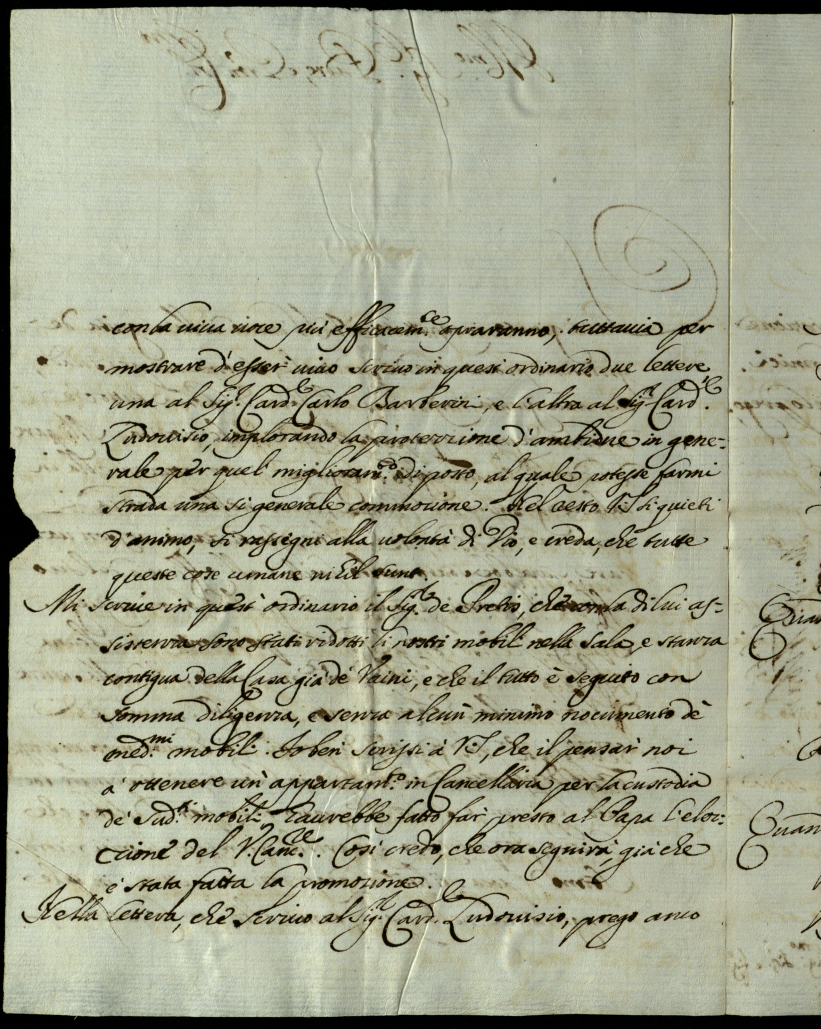 con la viua uoce più efficacem.ce opraranno, tuttauia per
mostrare d'esser uiuo scriuo in quest' ordinario due lettere
una al Sig.r Card.le Carlo Barberini, e l'altra al Sig.r Card.le
Ludouisio, implorando la protezzione d'ambidue in gene-
rale per quel miglioram.to di posto, al quale potesse farmi
strada una si generale commozione. Nel resto V.S. si quieti
d'animo, si rassegni alla uolontà di Dio, e creda, che tutte
queste cose umane nihil sunt.
Mi scriue in quest' ordinario il Sig.r de Pretis, che con la di lui as-
sistenza sono stati ridotti li nostri mobili nella Sala, e stanza
contigua della Casa già de Naini, e che il tutto è seguito con
somma diligenza, e senza alcun minimo nocumento de
med.mi mobili. Io ben scrissi à V.S., che il pensar noi
a' ottenere un' appartam.to in Cancellaria per la custodia
de' Sud.i mobili haurebbe fatto far presto al Papa l'elez-
zione del V.Canc.re. Cosi credo, che ora seguirà, già che
è stata fatta la promozione.
Nella lettera, che scriuo al Sig.r Card.le Ludouisio, prego anco